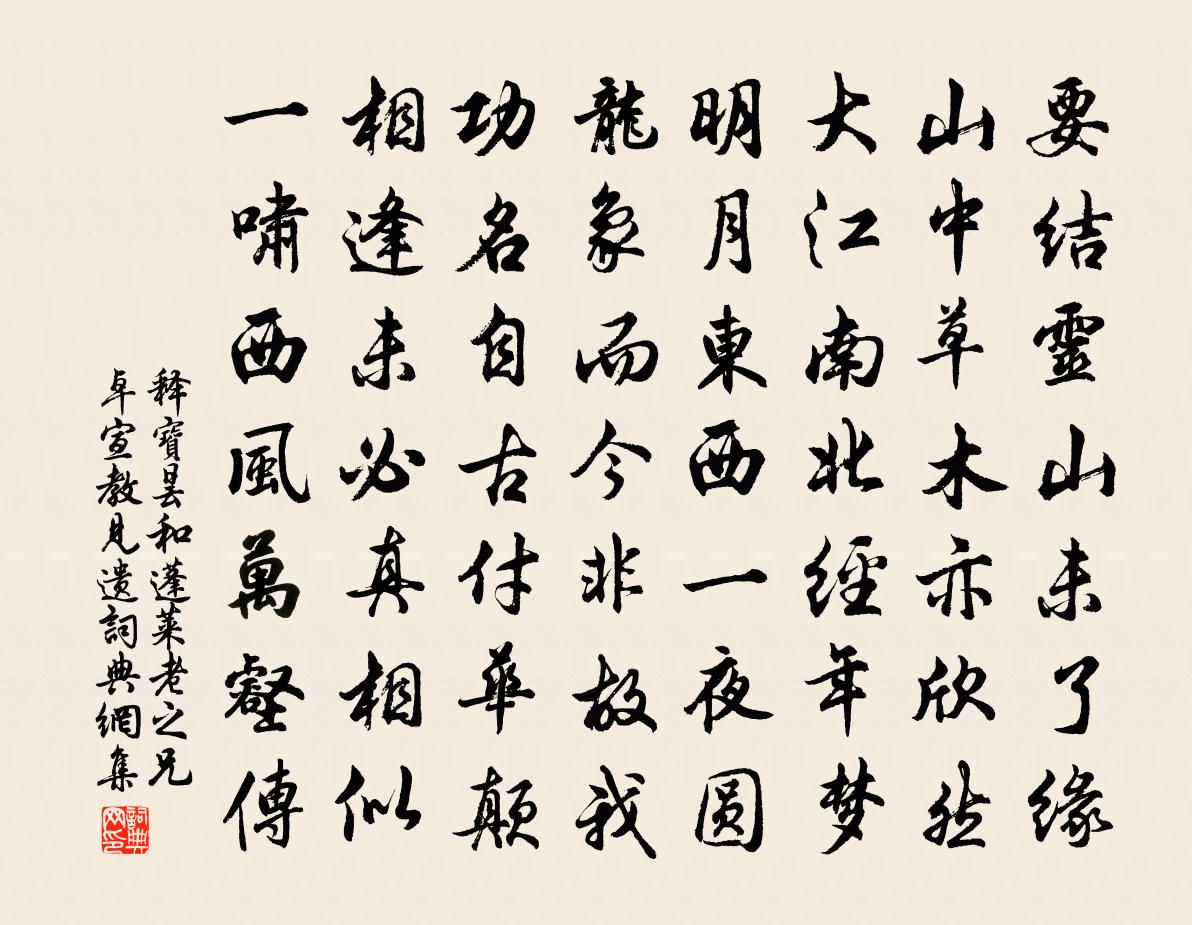 要结靈山未了緣
山中草木亦欣然
大江南北經年梦
明月東西一夜圓
龍象而今非故我
功名自古付華顛
相逢未必真相似
一嘯西風萬壑傳
释寶曇和蓬萊老之兄
卓宣教見遺詞典網集
詞典
网印